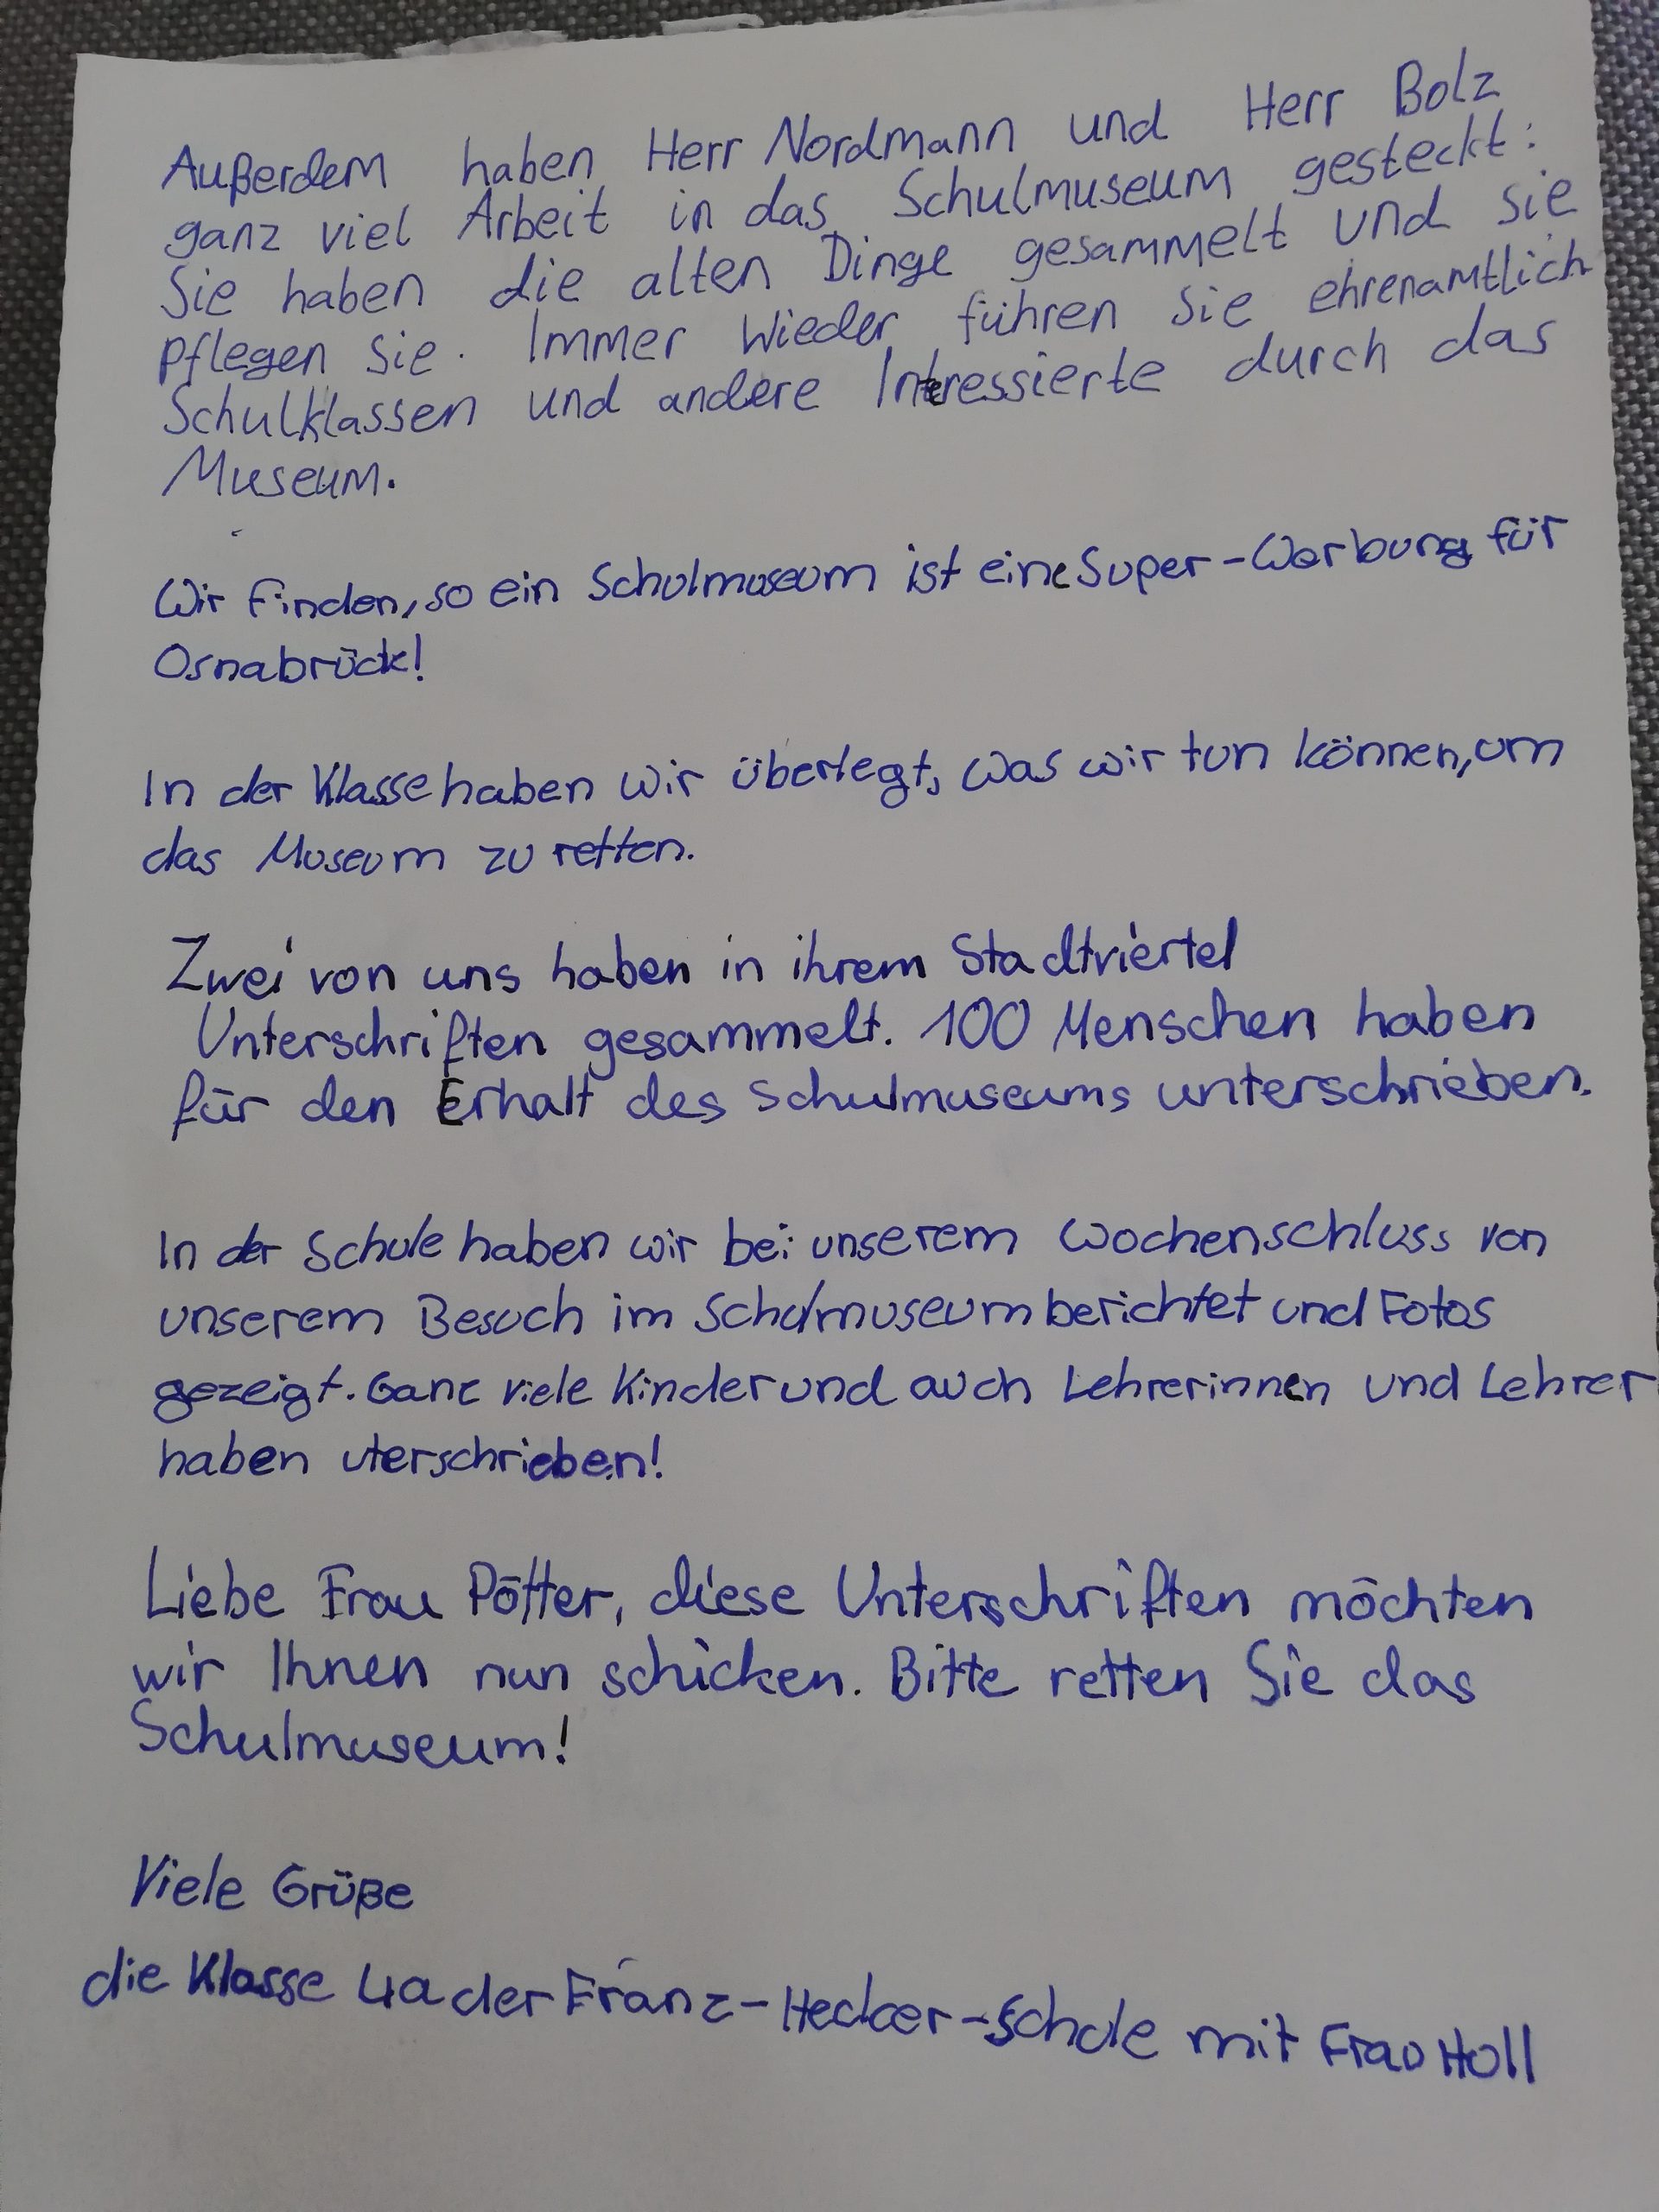 Außerdem haben Herr Nordmann und Herr Bolz
ganz viel Arbeit in das Schulmuseum gesteckt:
Sie haben die alten Dinge gesammelt und sie
pflegen sie. Immer wieder führen sie ehrenamtlich
Schulklassen und andere Interessierte durch das
Museum.
Wir finden, so ein Schulmuseum ist eine Super-Werbung für
Osnabrück!
In der Klasse haben wir überlegt, was wir tun können, um
das Museum zu retten.
Zwei von uns haben in ihrem Stadtviertel
Unterschriften gesammelt. 100 Menschen haben
für den Erhalt des Schulmuseums unterschrieben.
In der Schule haben wir bei unserem Wochenschluss von
unserem Besuch im Schulmuseum berichtet und Fotos
gezeigt. Ganz viele Kinder und auch Lehrerinnen und Lehrer
haben uterschrieben!
Liebe Frau Pötter, diese Unterschriften möchten
wir Ihnen nun schicken. Bitte retten Sie das
Schulmuseum!
Viele Grüße
die Klasse 4a der Franz-Hecker-Schule mit Frau Holl